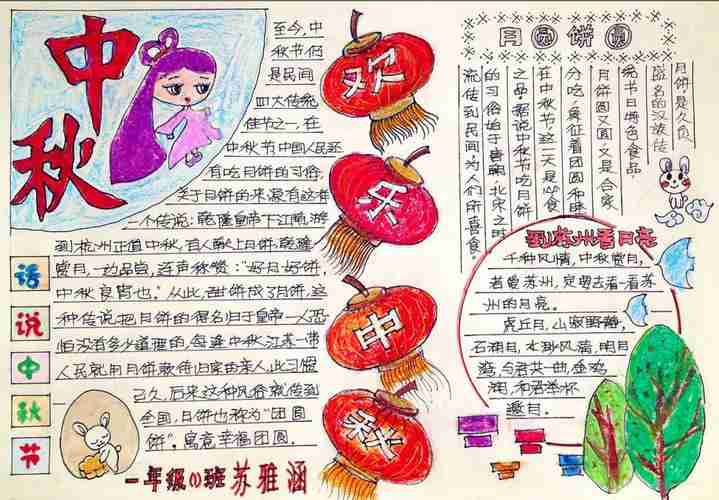 中
秋
至今,中
秋节仍
是民间
四大传统
佳节之一,在
中秋节中国人民还
有吃月饼的习俗.
关于月饼的来源有这样
一个传说:乾隆皇帝下江南,游
到杭州正值中秋,有人献上月饼,乾隆
赏月,一边品尝,还声称赞:“好月好饼,
中秋良宵也.”从此,甜饼成了月饼,这
种传说把月饼的得名归于皇帝一人恐
怕没有多少道理的,每逢中秋,江苏一带
人民就用月饼款待归家的亲人,此习惯
已久,后来这种风俗就传到
全国,月饼也称为“团圆
饼”.寓意幸福团圆.
话
说
中
秋
节
欢
乐
中
秋
一年级(1)班 苏雅涵
月圆饼圆
月饼是久负
盛名的汉族传
统节日特色食品,
月饼圆又圆,又是合家
分吃,象征着团圆和睦
在中秋节,这一天是必食
之品.据说中秋节吃月饼
的习俗始于唐朝.北宋之时
流传到民间为人们所喜食.
到苏州看月亮
千种风情,中秋赏月,
若爱苏州,定要去看一看苏
州的月亮.
虎丘月,山寂野静,
石湖月,水渺风清,明月
湾,今君共一曲,金鸡
湖,和君举杯
邀月.